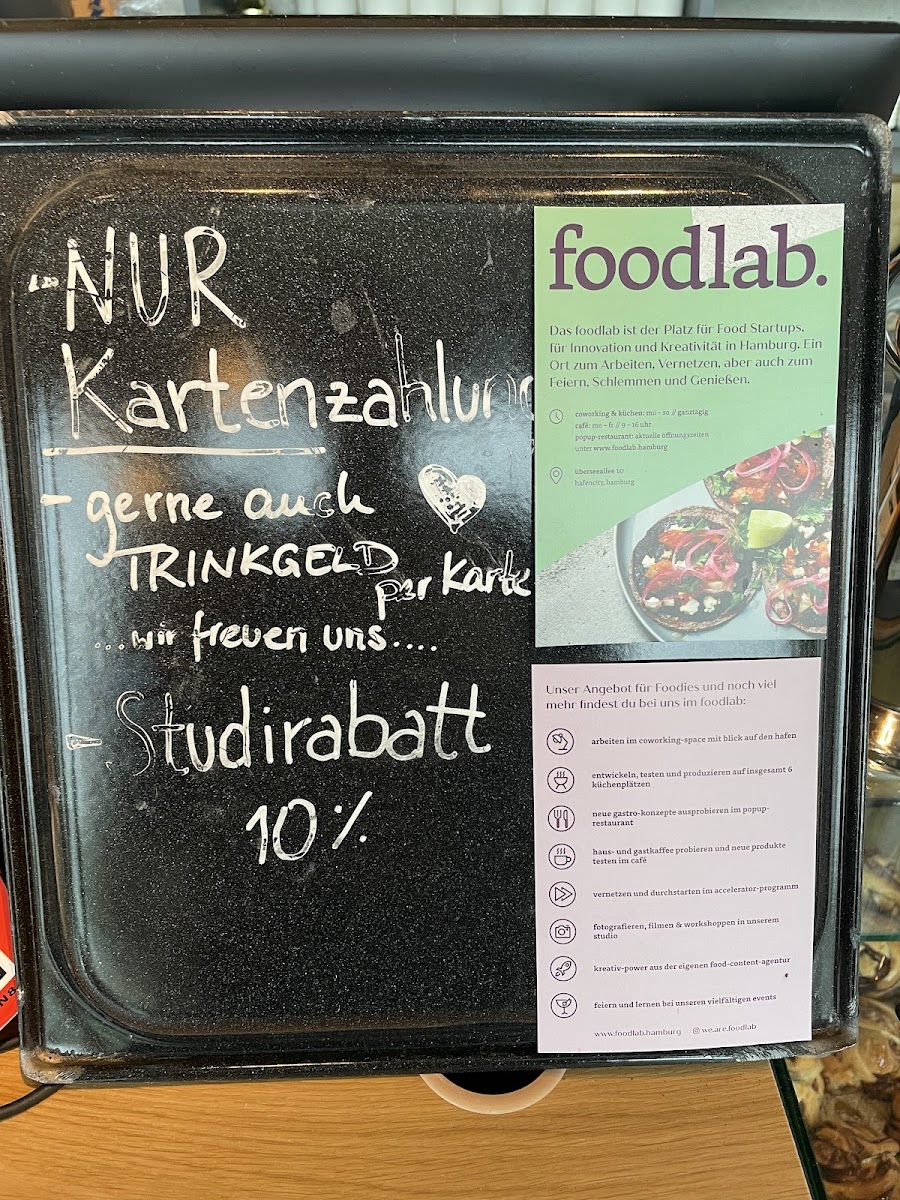 - NUR
Kartenzahlung
- gerne auch
TRINKGELD
per Karte
...wir freuen uns....
- Studirabatt
10%
foodlab.
Das foodlab ist der Platz für Food Startups,
für Innovation und Kreativität in Hamburg. Ein
Ort zum Arbeiten, Vernetzen, aber auch zum
Feiern, Schlemmen und Genießen.
coworking & küchen: mo – so // ganztägig
café: mo – fr // 9 – 16 uhr
popup-restaurant: aktuelle öffnungszeiten
unter www.foodlab.hamburg
überseeallee 10
hafencity, hamburg
Unser Angebot für Foodies und noch viel
mehr findest du bei uns im foodlab:
arbeiten im coworking-space mit blick auf den hafen
entwickeln, testen und produzieren auf insgesamt 6
küchenplätzen
neue gastro-konzepte ausprobieren im popup-
restaurant
haus- und gastkaffee probieren und neue produkte
testen im café
vernetzen und durchstarten im accelerator-programm
fotografieren, filmen & workshoppen in unserem
studio
kreativ-power aus der eigenen food-content-agentur
feiern und lernen bei unseren vielfältigen events
www.foodlab.hamburg we.are.foodlab